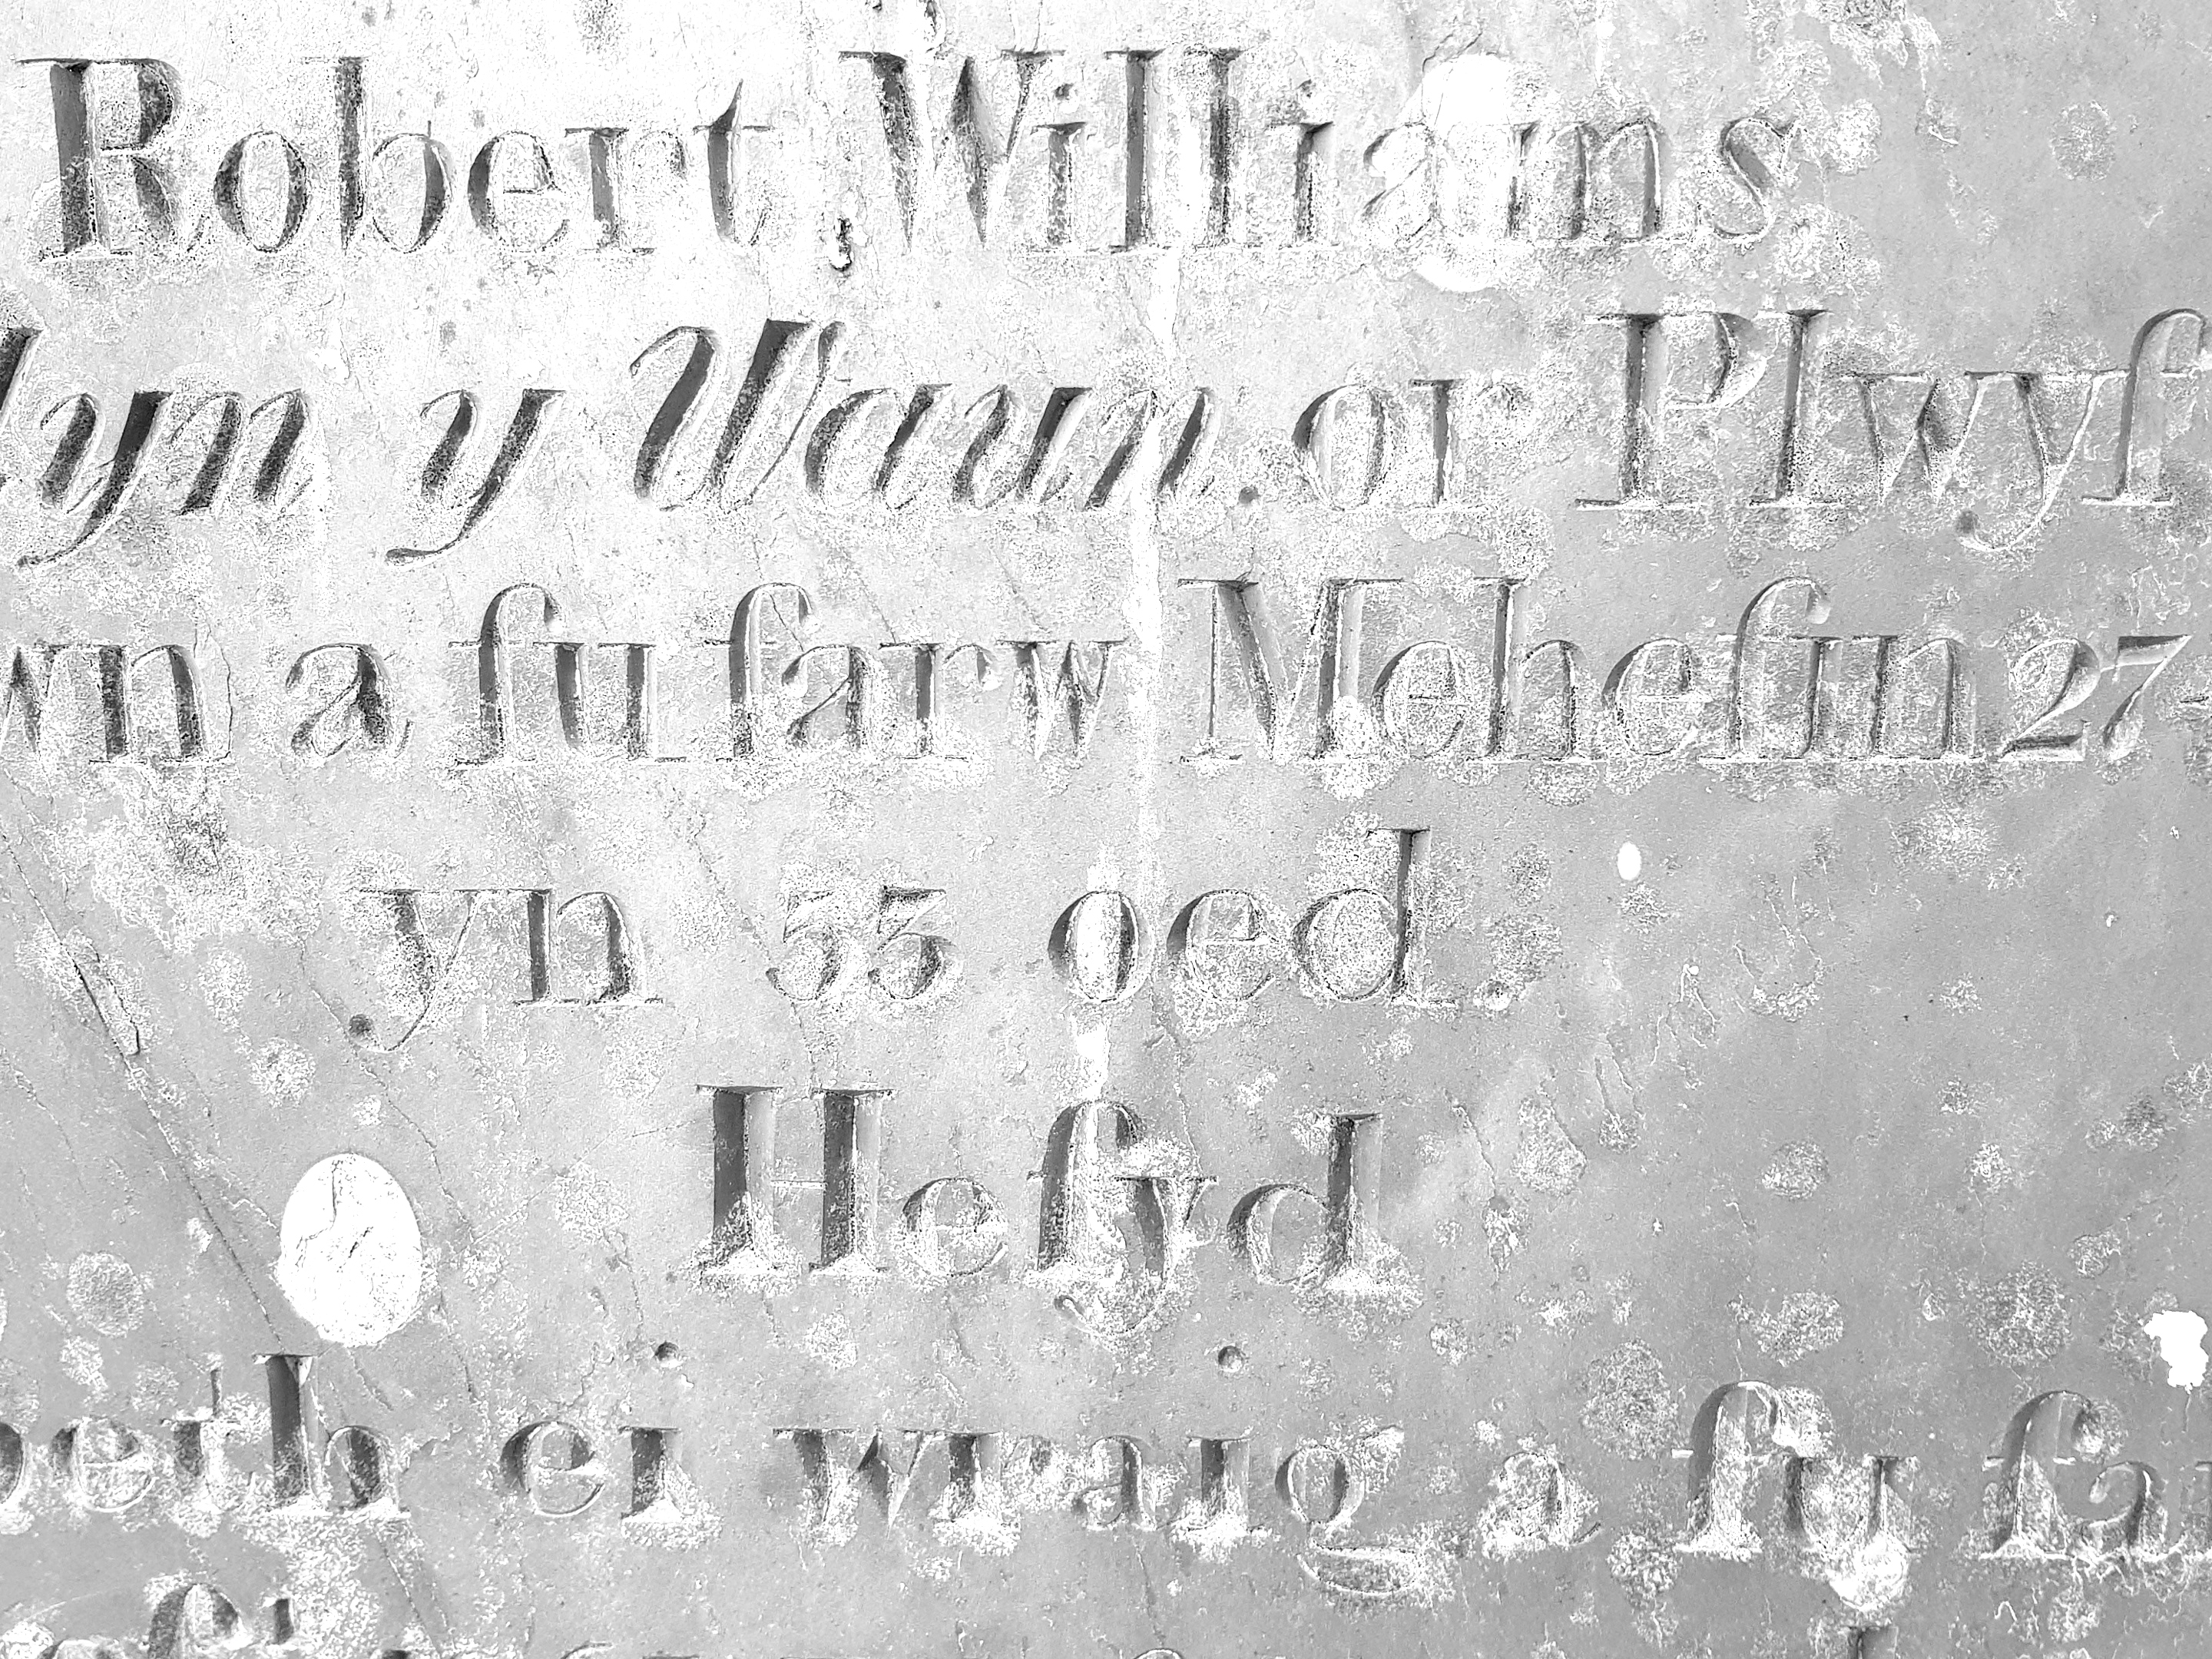 Robert Williams
y Waun. or Plwyf
a fu farw Mehefin 27
yn 55 oed.
Hefyd
ei wraig a fu